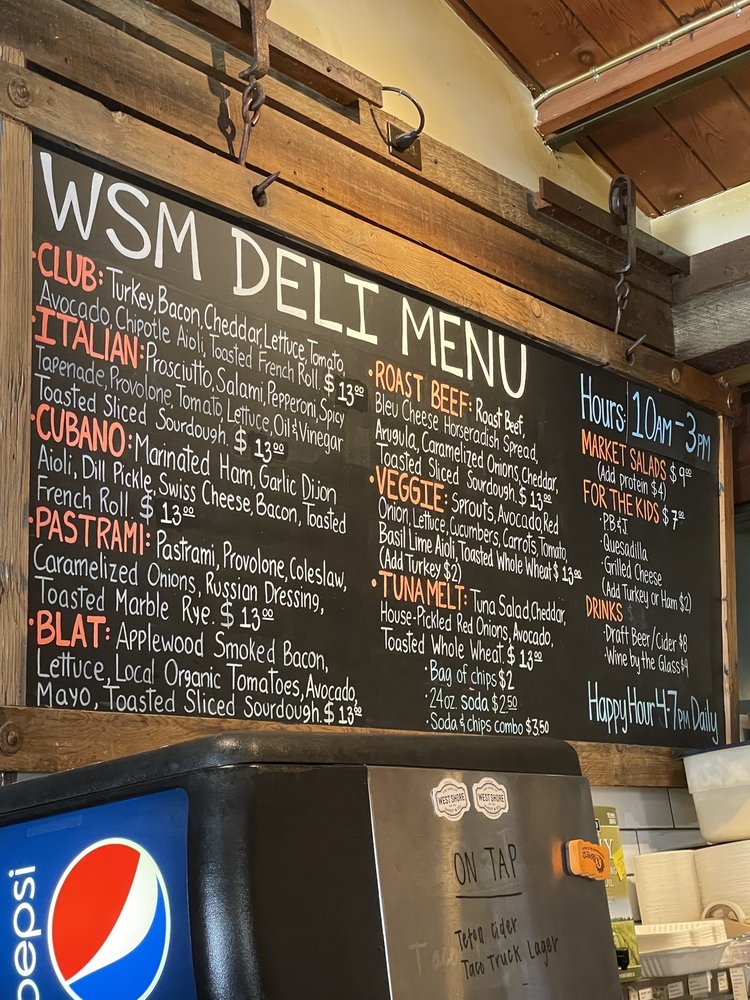 WSM DELI MENU
•CLUB: Turkey, Bacon, Cheddar, Lettuce, Tomato,
Avocado, Chipotle Aioli, Toasted French Roll. $13.00
•ITALIAN: Prosciutto, Salami, Pepperoni, Spicy
Tapenade, Provolone, Tomato, Lettuce, Oil & Vinegar
Toasted Sliced Sourdough. $13.00
•CUBANO: Marinated Ham, Garlic Dijon
Aioli, Dill Pickle, Swiss Cheese, Bacon, Toasted
French Roll. $13.00
•PASTRAMI: Pastrami, Provolone, Coleslaw,
Caramelized Onions, Russian Dressing,
Toasted Marble Rye. $13.00
•BLAT: Applewood Smoked Bacon,
Lettuce, Local Organic Tomatoes, Avocado,
Mayo, Toasted Sliced Sourdough. $13.00
•ROAST BEEF: Roast Beef,
Bleu Cheese Horseradish Spread,
Arugula, Caramelized Onions, Cheddar,
Toasted Sliced Sourdough. $13.00
•VEGGIE: Sprouts, Avocado, Red
Onion, Lettuce, Cucumbers, Carrots, Tomato,
Basil Lime Aioli, Toasted Whole Wheat $13.00
(Add Turkey $2)
•TUNA MELT: Tuna Salad, Cheddar,
House-Pickled Red Onions, Avocado,
Toasted Whole Wheat. $13.00
•Bag of chips $2
•24oz. soda $2.50
•Soda & chips combo $3.50
Hours 10AM-3PM
MARKET SALADS $9.00
(Add protein $4)
FOR THE KIDS $7.00
•PB&J
•Quesadilla
•Grilled Cheese
(Add Turkey or Ham $2)
DRINKS
•Draft Beer/Cider $8
•Wine by the Glass $9
Happy Hour 4-7PM Daily
pepsi
WEST SHORE
WEST SHORE
ON TAP
Teton Cider
Taco Truck Lager